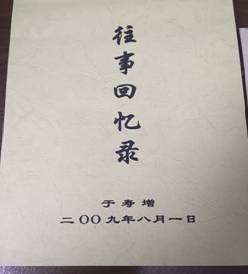 往事回忆录
于寿增
二〇〇九年八月一日